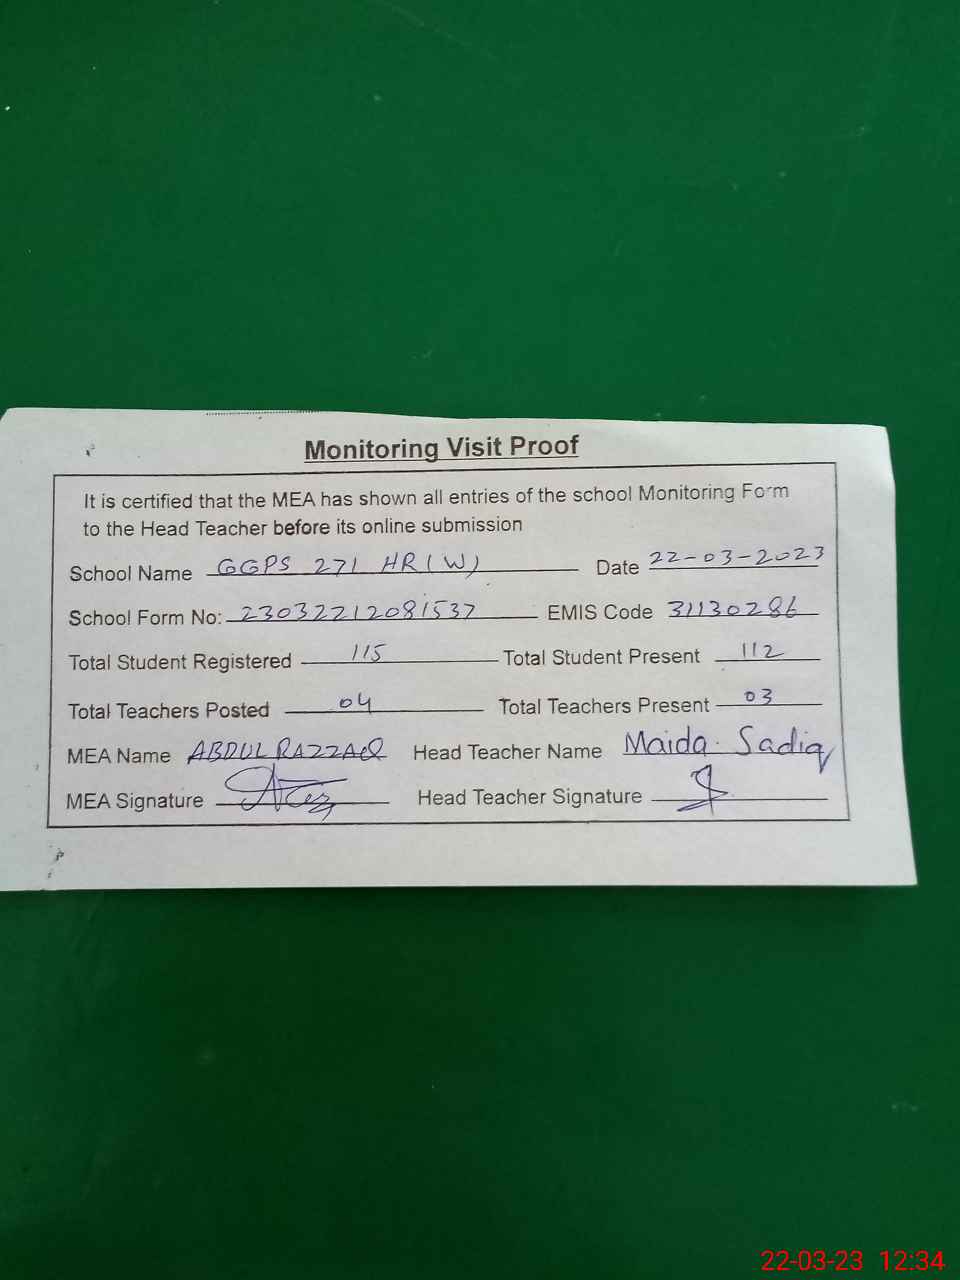 Monitoring Visit Proof
It is certified that the MEA has shown all entries of the school Monitoring Form
to the Head Teacher before its online submission
School Name GGPS 271 HR(W) Date 22-03-2023
School Form No: 23032212081537 EMIS Code 31130286
Total Student Registered 115 Total Student Present 112
Total Teachers Posted 04 Total Teachers Present 03
MEA Name ABDUL RAZZAQ Head Teacher Name Maida Sadiq
MEA Signature Head Teacher Signature
22-03-23 12:34